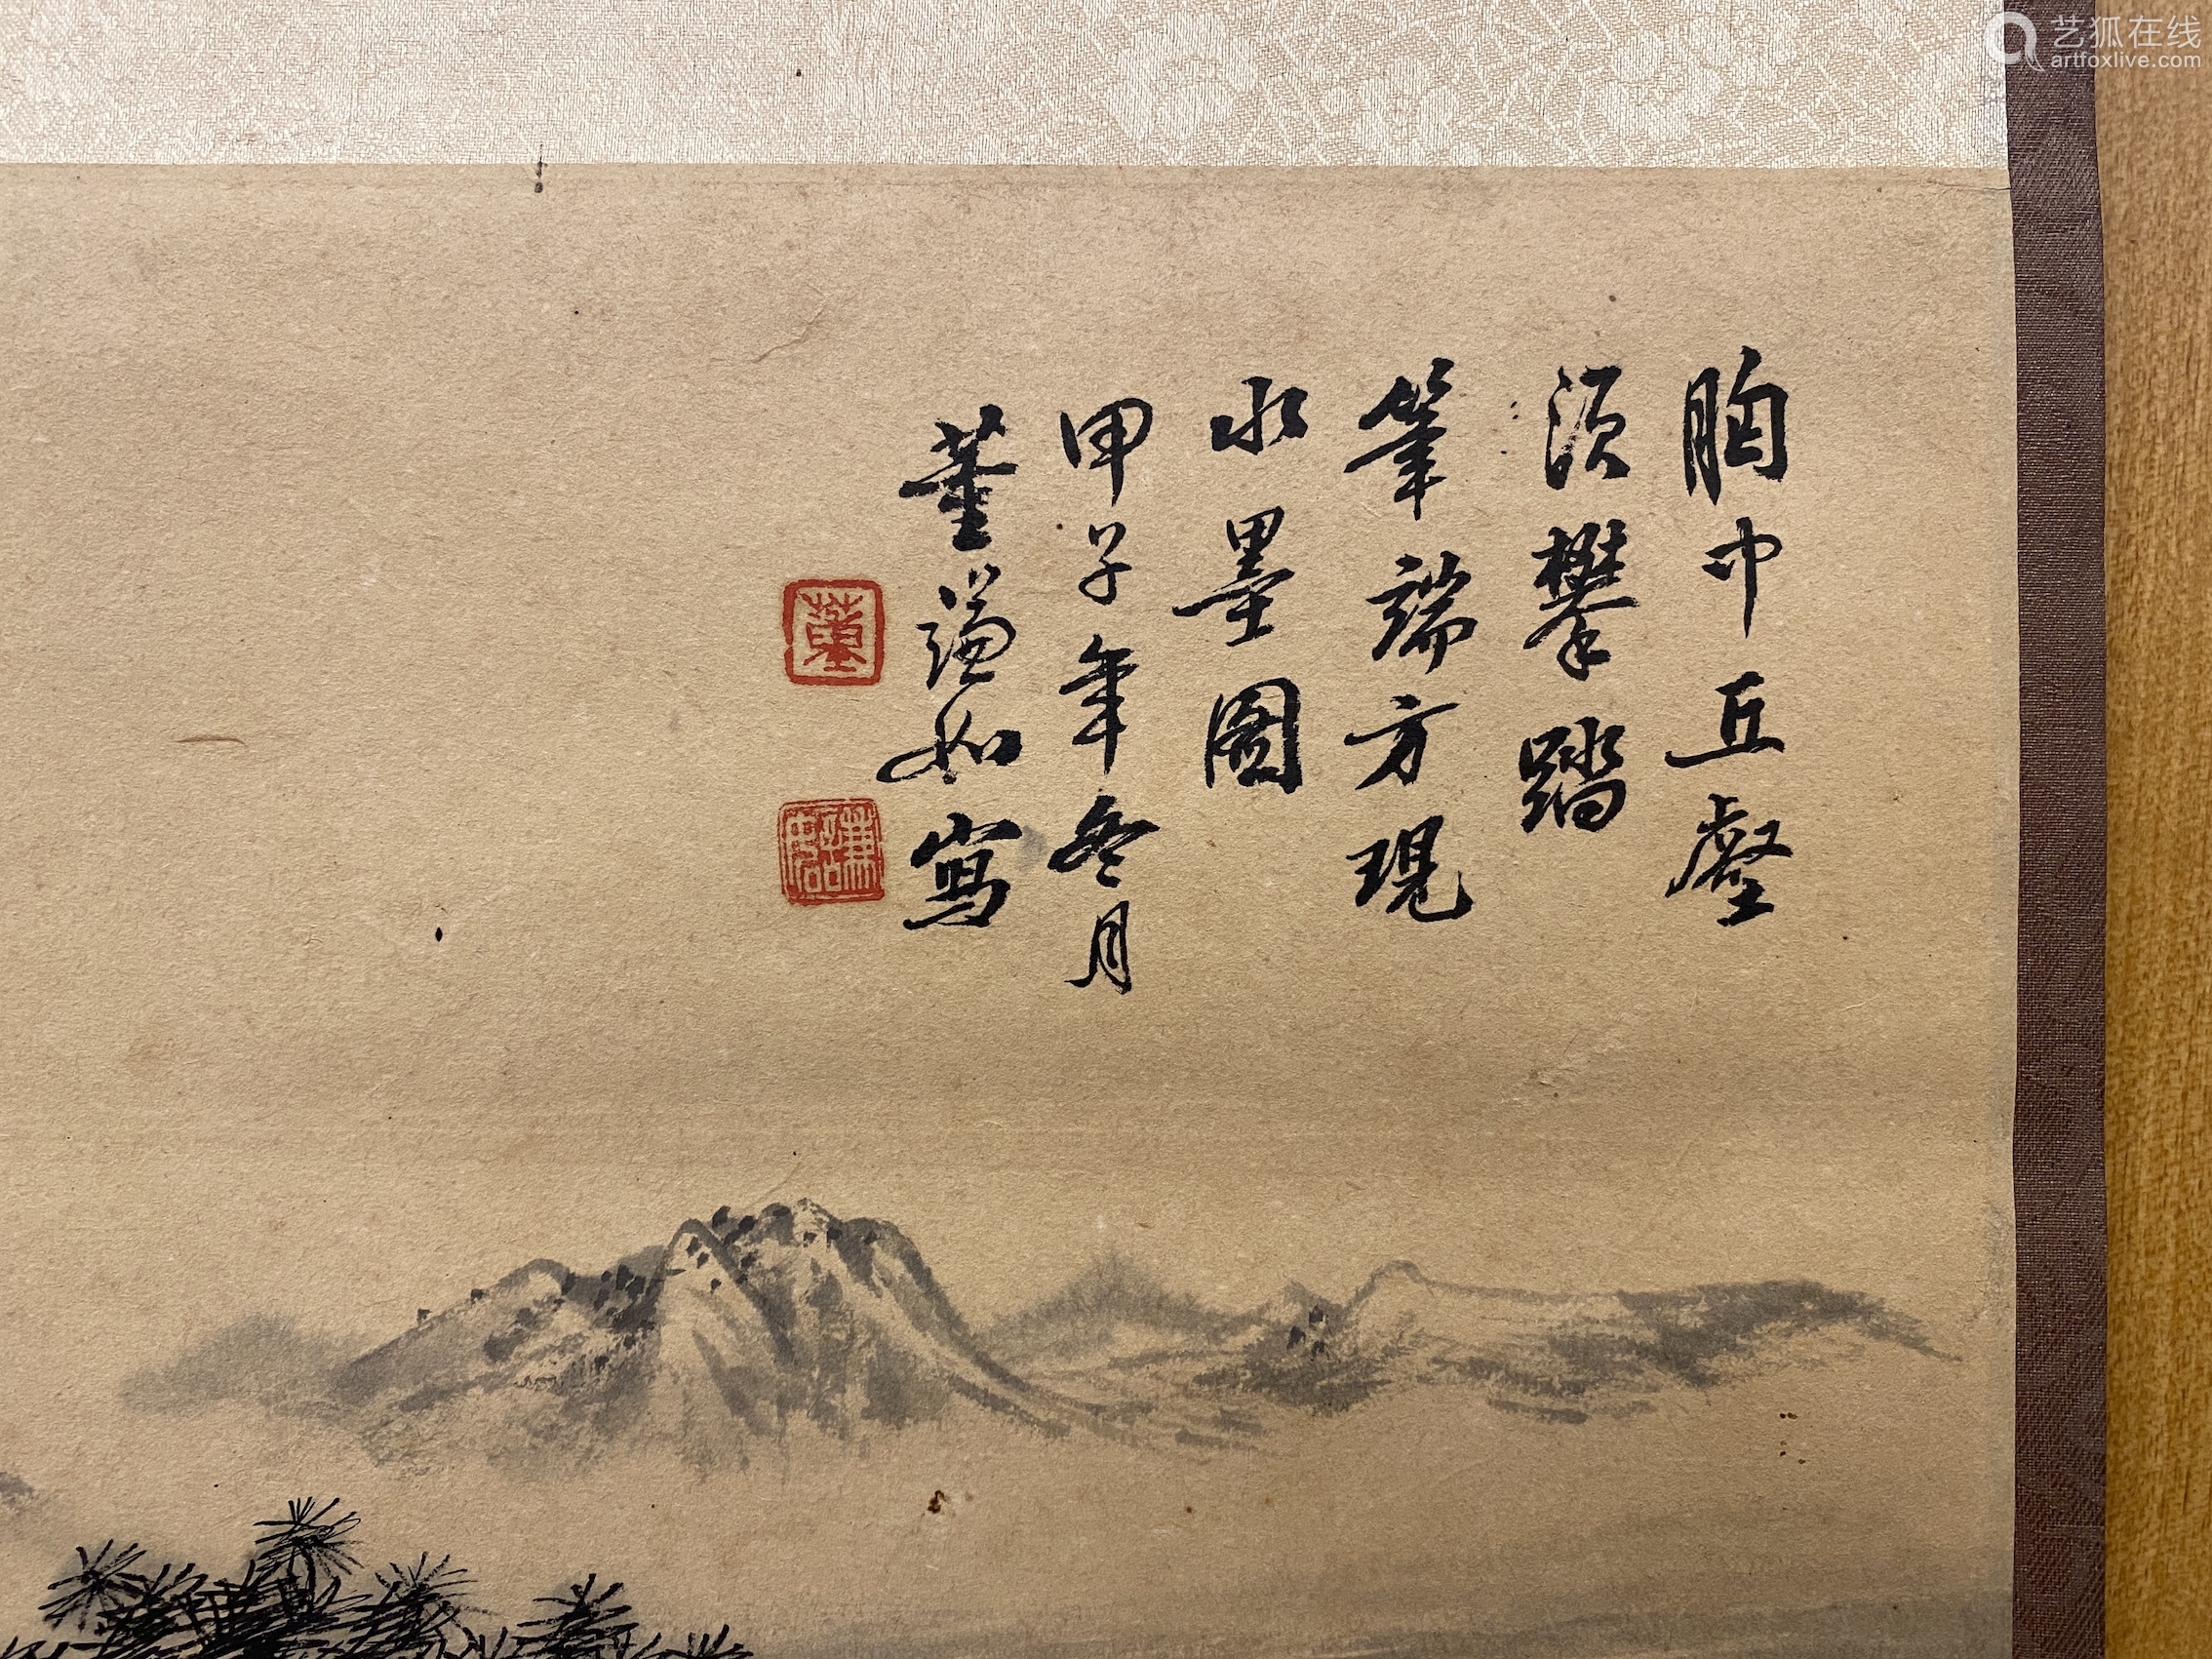 胸中丘壑
須攀踏
筆端方現
水墨圖
甲子年冬月
董謙如寫
董
艺狐在线
artfoxlive.com